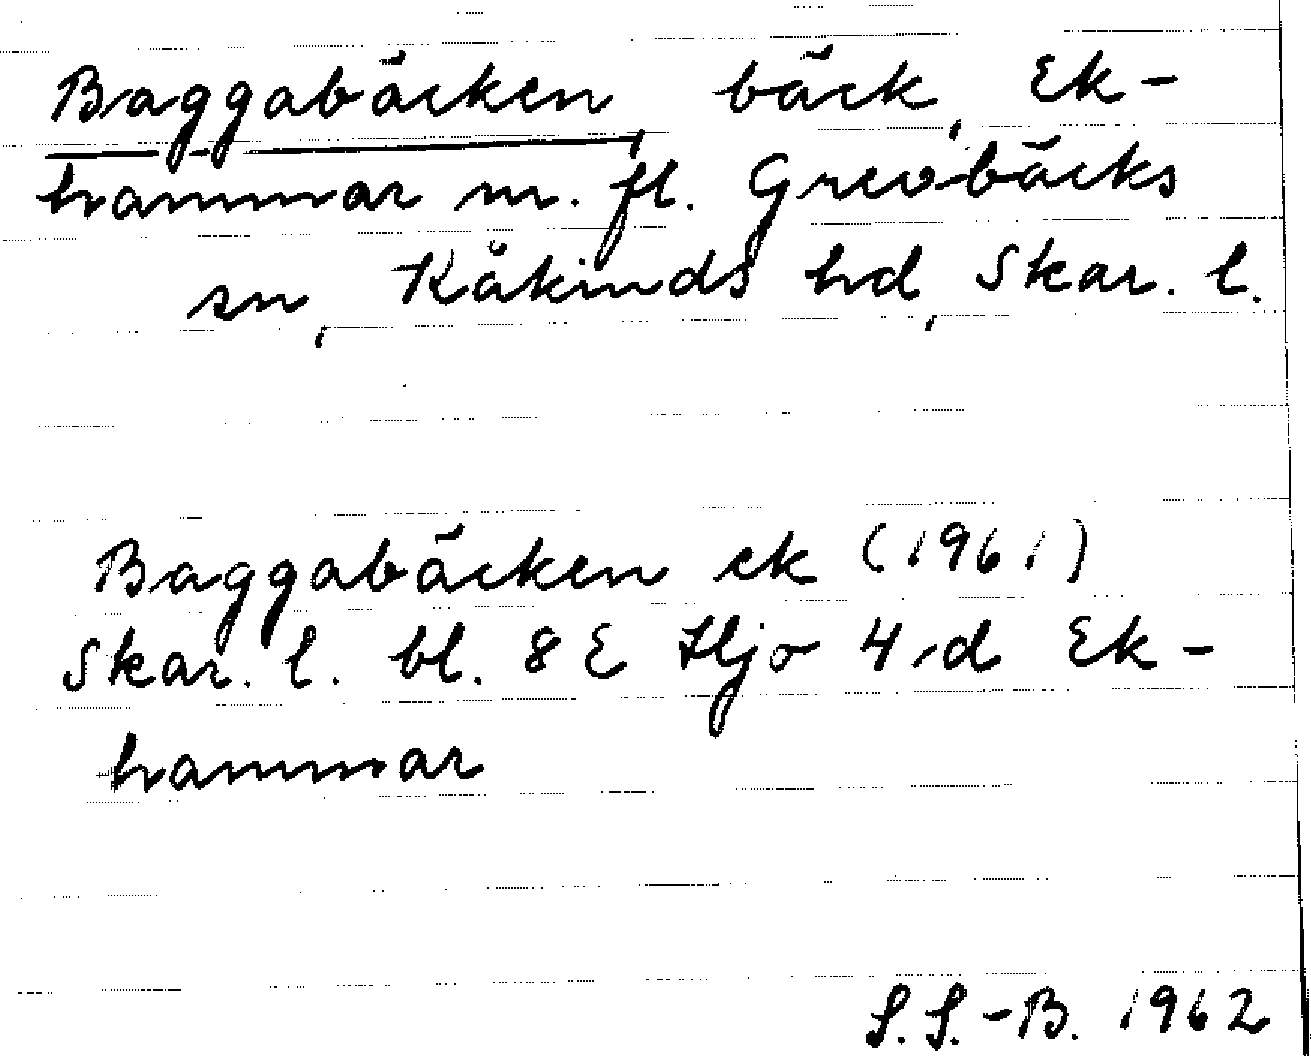 Baggabäcken, bäck, Ek-
hammar m. fl. Grevbäcks
sn, Kåkinds hd, Skar. l.
Baggabäcken ek (1961)
Skar. l. bl. 8 E Hjo 4 d Ek-
hammar
S.S.-B. 1962